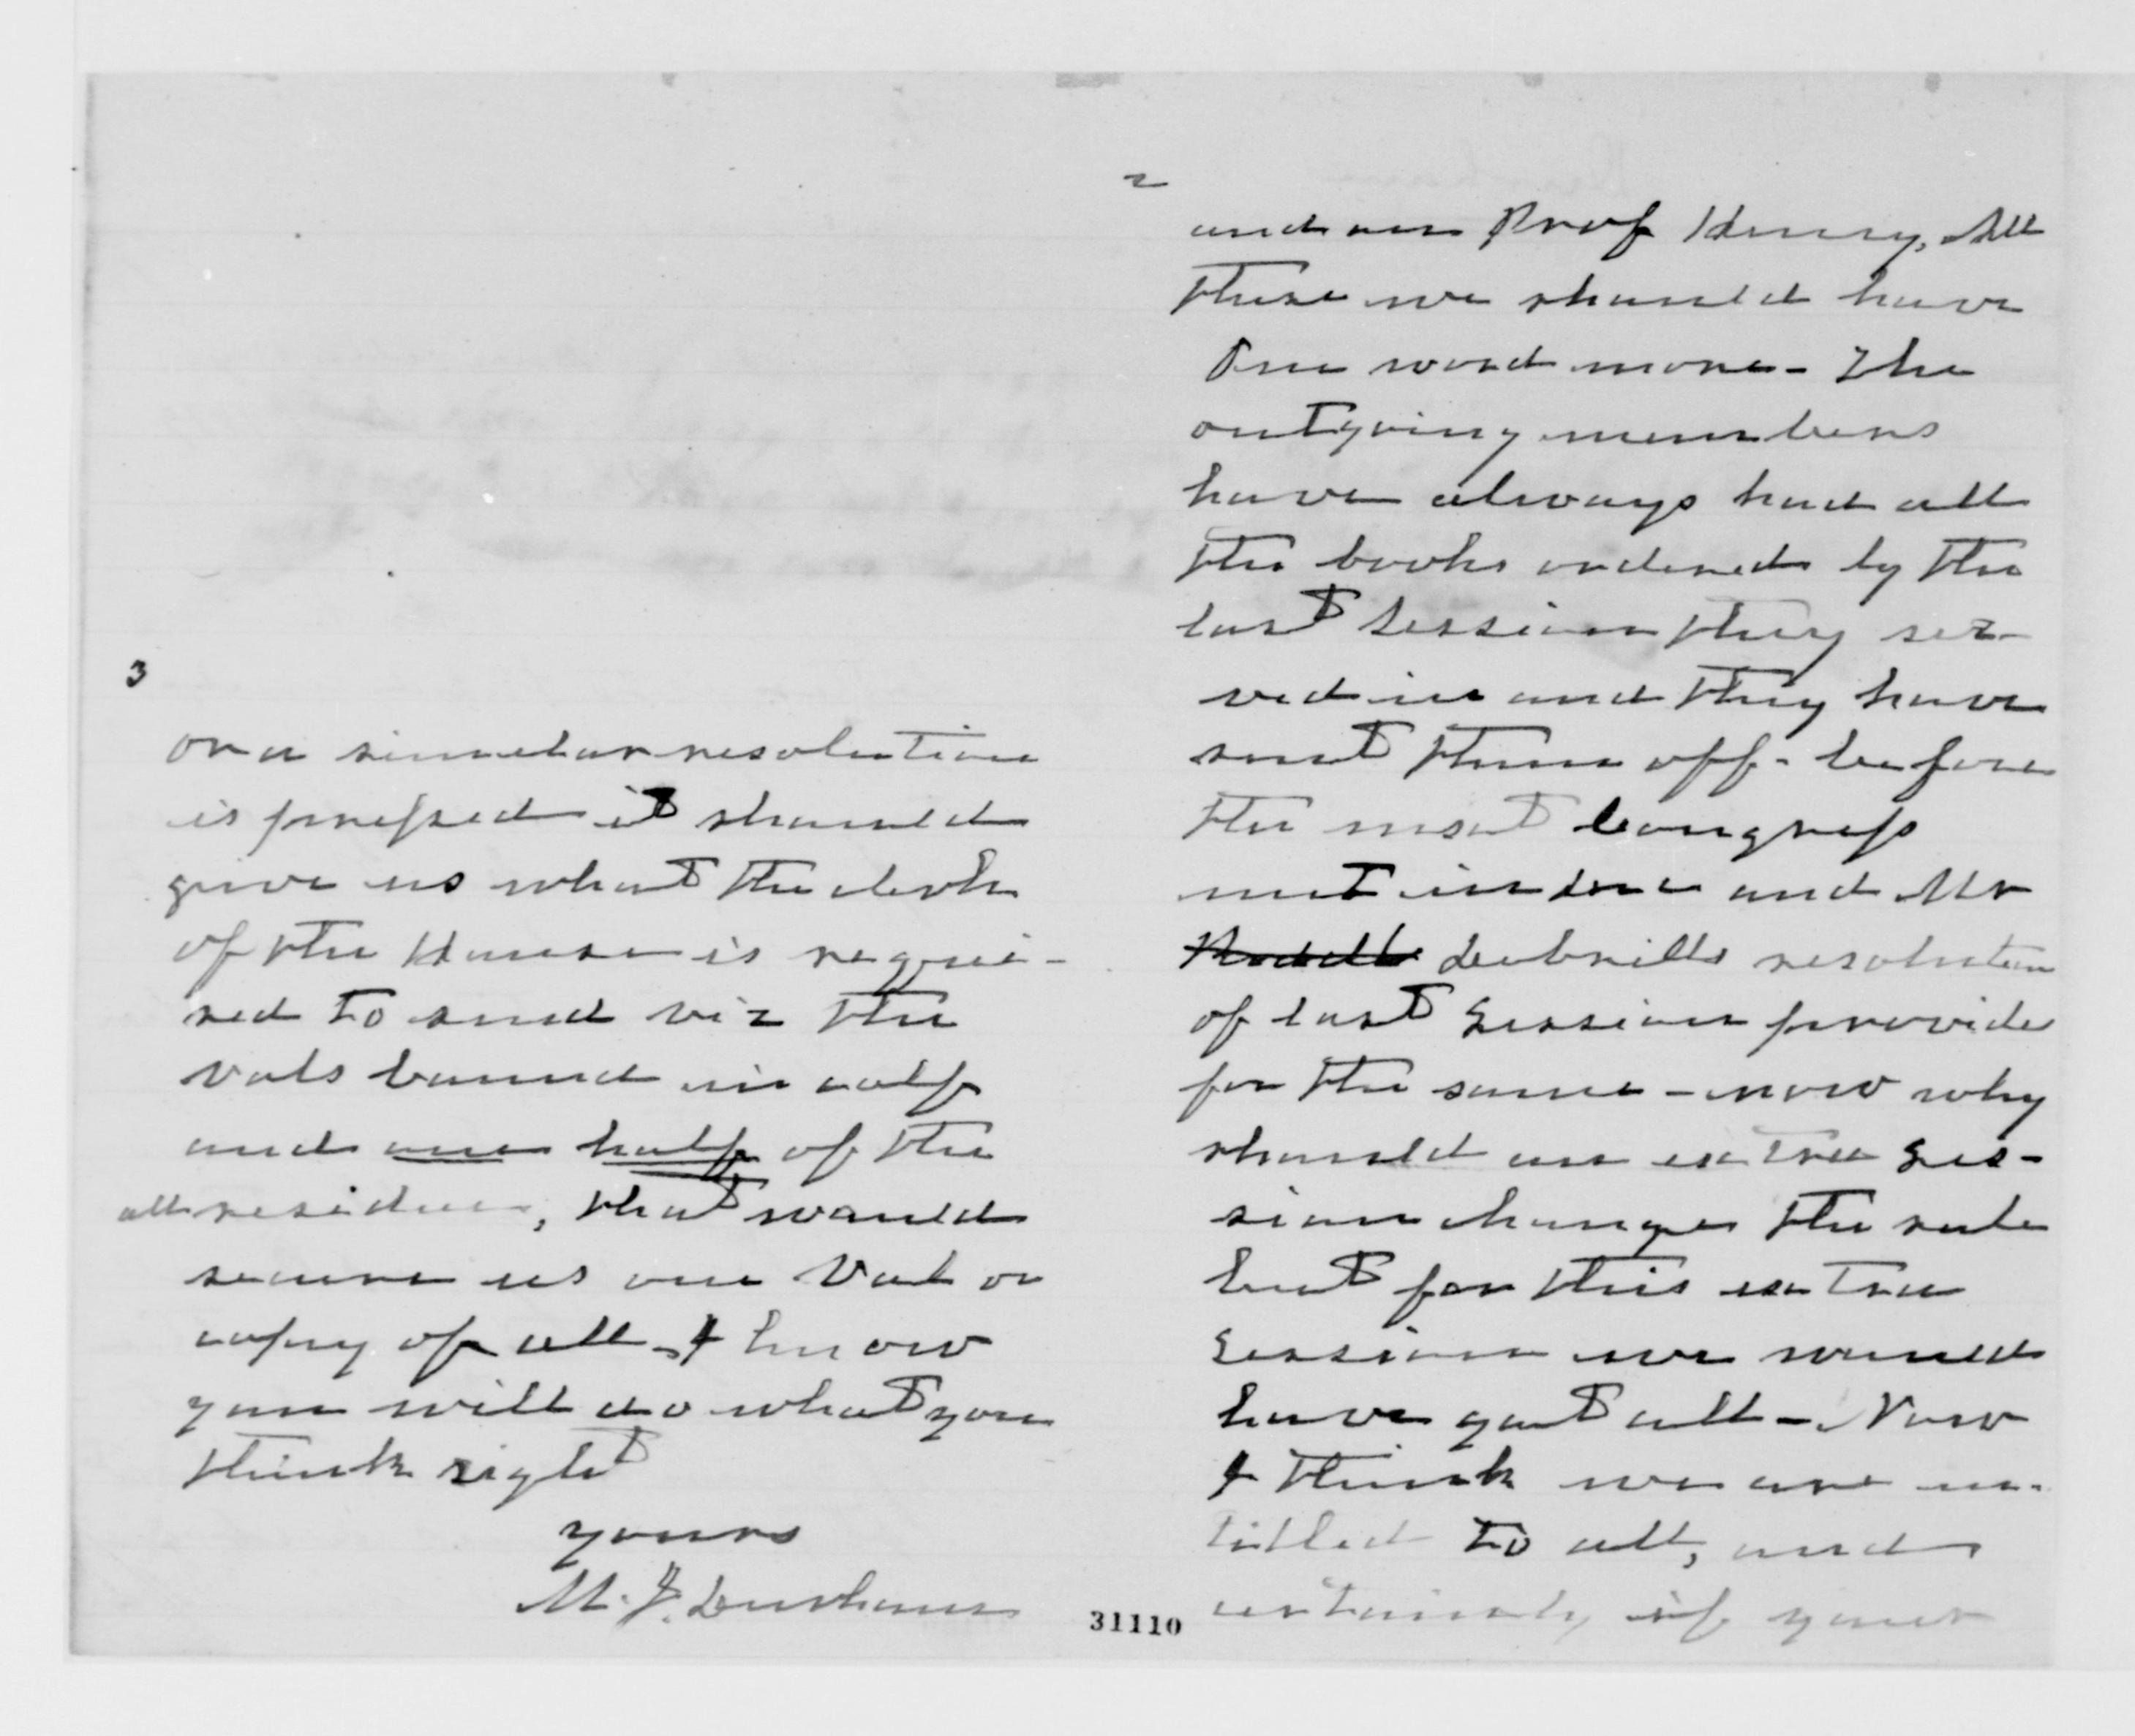 2
and on Prof Henry, All
these we should have
One word more - The
outgoing members
have always had all
the books ordered by the
last Session they ser-
ved in and they have
sent them off - before
the next Congress
met in Dec and Mr
resolution
of last Session provides
for the same - now why
should an extra Ses-
sion change the rule
but for this extra
Session we would
have got all - Now
I think we are en-
titled to all, and
certainly if your
3
or a similar resolution
is passed it should
give us what the clerk
of the House is requi-
red to send viz the
vols bound in calf
and one half of the
all residue, that would
secure us one Vol or
copy of all. I know
you will do what you
think right
yours
M. J. Durham
31110